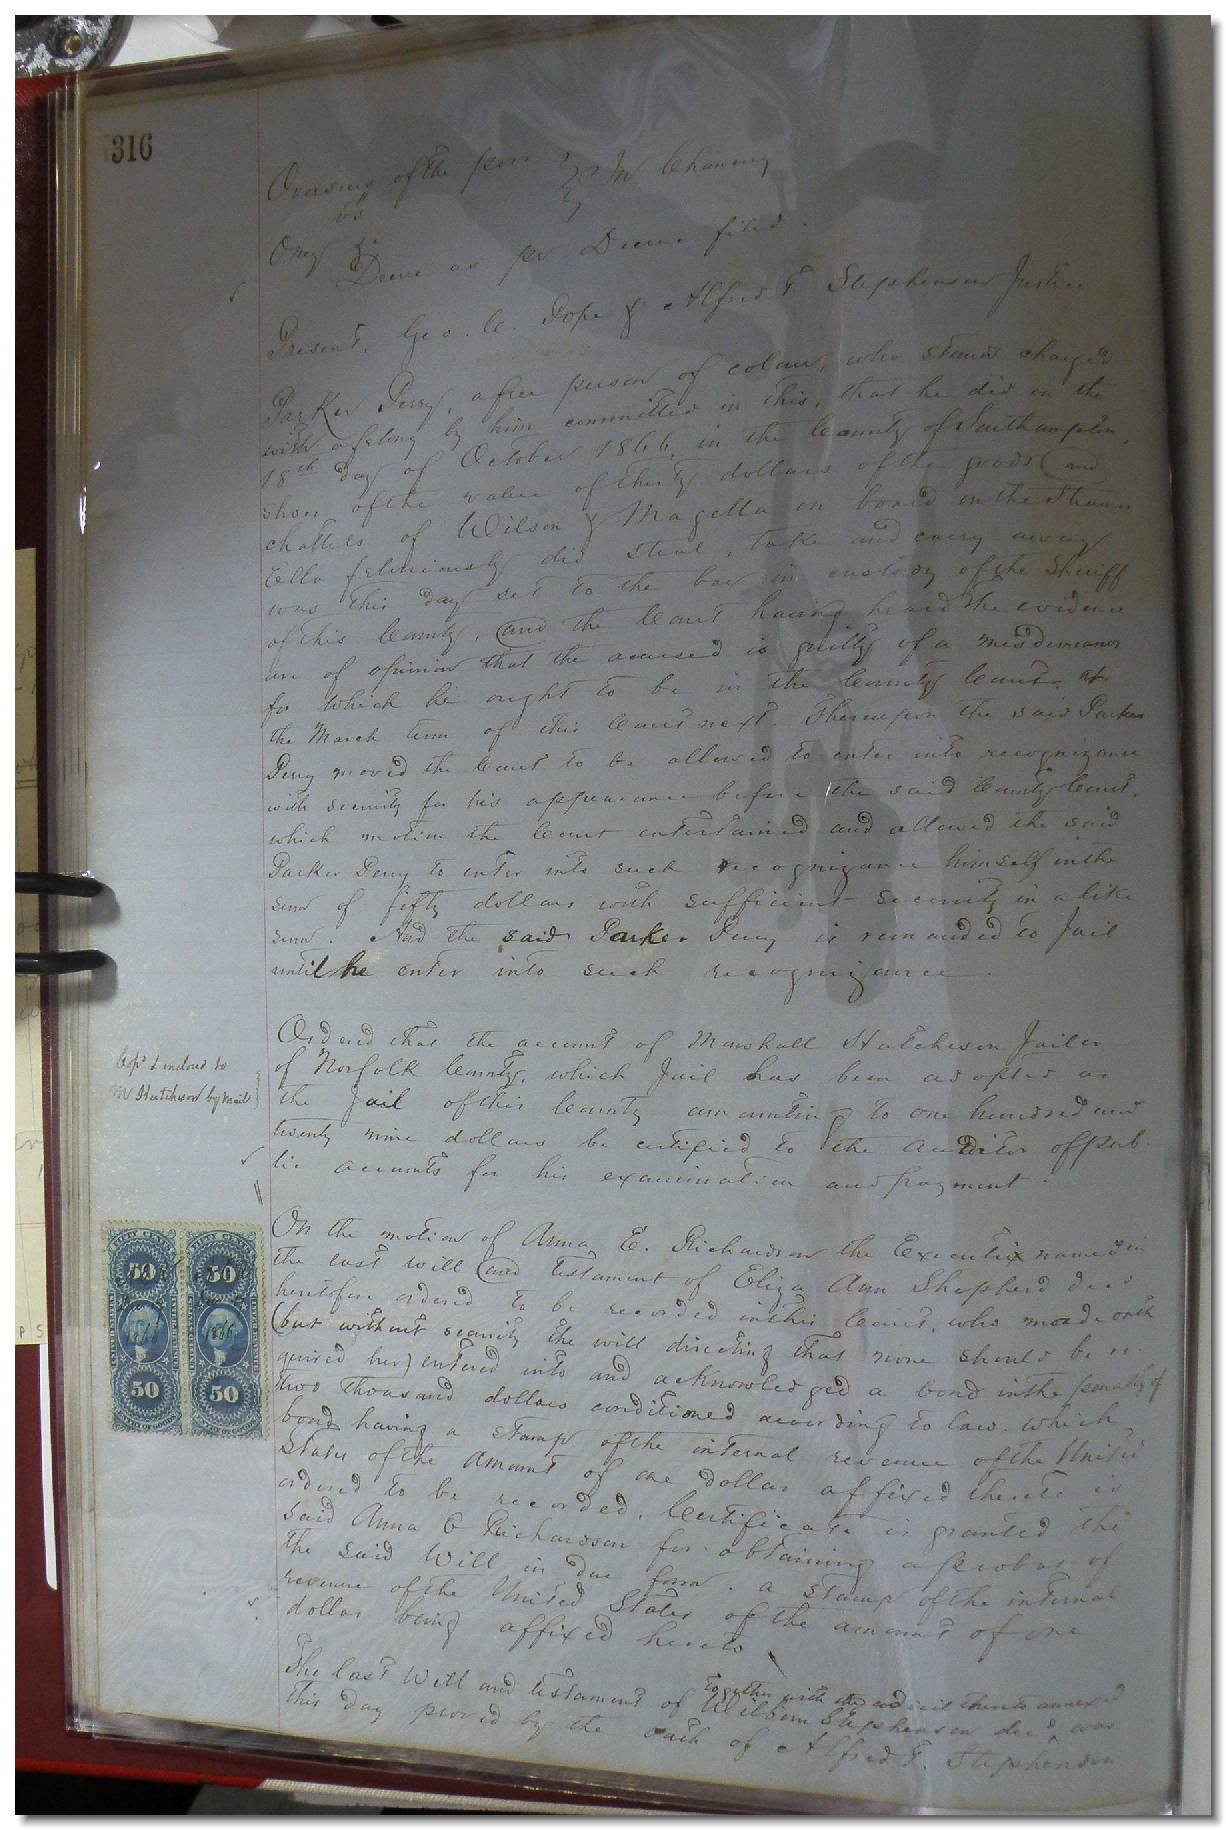 316
Overseers of the poor } In Chancery
vs
Oney &c
Decree as pr Decree filed.
Present. Geo. W. Pope & Alfred T Stephenson Justices
Parker Perry, a free person of colour, who stands charged
with a felony by him committed in this, that he did on the
18th day of October 1866, in the County of Southampton,
shoes of the value of thirty dollars of the goods and
chattels of Wilson & Magella on board on the Steamer
Ella feloniously did steal, take and carry away
was this day set to the bar in custody of the Sheriff
of this County, and the Court having heard the evidence
are of opinion that the accused is guilty of a misdemeanor
for which he ought to be in the County Court at
the March term of this Court next. Thereupon the said Parker
Perry moved the Court to be allowed to enter into recognizance
with security for his appearance before the said County Court,
which motion the Court entertained and allowed the said
Parker Perry to enter into such recognizance himself in the
sum of fifty dollars with sufficient security in a like
sum. And the said Parker Perry is remanded to Jail
until he enter into such recognizance.
Ordered that the account of Marshall Hutcheson Jailer
of Norfolk County, which Jail has been adopted as
the Jail of this County amounting to one hundred and
twenty nine dollars be certified to the Auditor of pub
lic accounts for his examination and payment.
Cop'd & indors'd to
Mr Hutcheson by mail
On the motion of Anna E. Richardson the Executrix named in
the last will and testament of Eliza Ann Shepherd dec'd
heretofore ordered to be recorded in this Court, who made oath
(but without security the will directing that none should be re-
quired her) entered into and acknowledged a bond in the penalty of
two thousand dollars conditioned according to law. which
bond having a stamp of the internal revenue of the United
States of the Amount of one dollar affixed thereto is
ordered to be recorded. Certificate is granted the
said Anna E Richardson for obtaining a probat of
the said Will in due form. a stamp of the internal
revenue of the United States of the amount of one
dollar being affixed hereto
FIFTY CENTS
50 50
1866 1866
50 50
together with the codicil thereto annexed
The last Will and testament of William Stephenson dec'd, was
this day proved by the oath of Alfred T. Stephenson